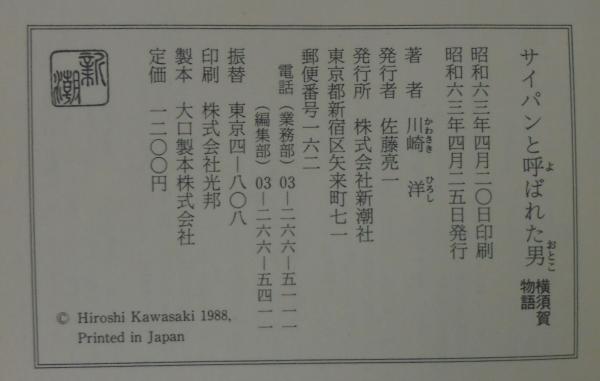 サイパンと呼ばれた男 横須賀物語
よ
おとこ
昭和六三年四月二〇日印刷
昭和六三年四月二五日発行
著者 川崎 洋
かわさき ひろし
発行者 佐藤亮一
発行所 株式会社新潮社
東京都新宿区矢来町七一
郵便番号一六二
電話(業務部)03―二六六―五一一一
(編集部)03―二六六―五四一一
振替 東京四―八〇八
印刷 株式会社光邦
製本 大口製本株式会社
定価 一二〇〇円
新潮
© Hiroshi Kawasaki 1988,
Printed in Japan